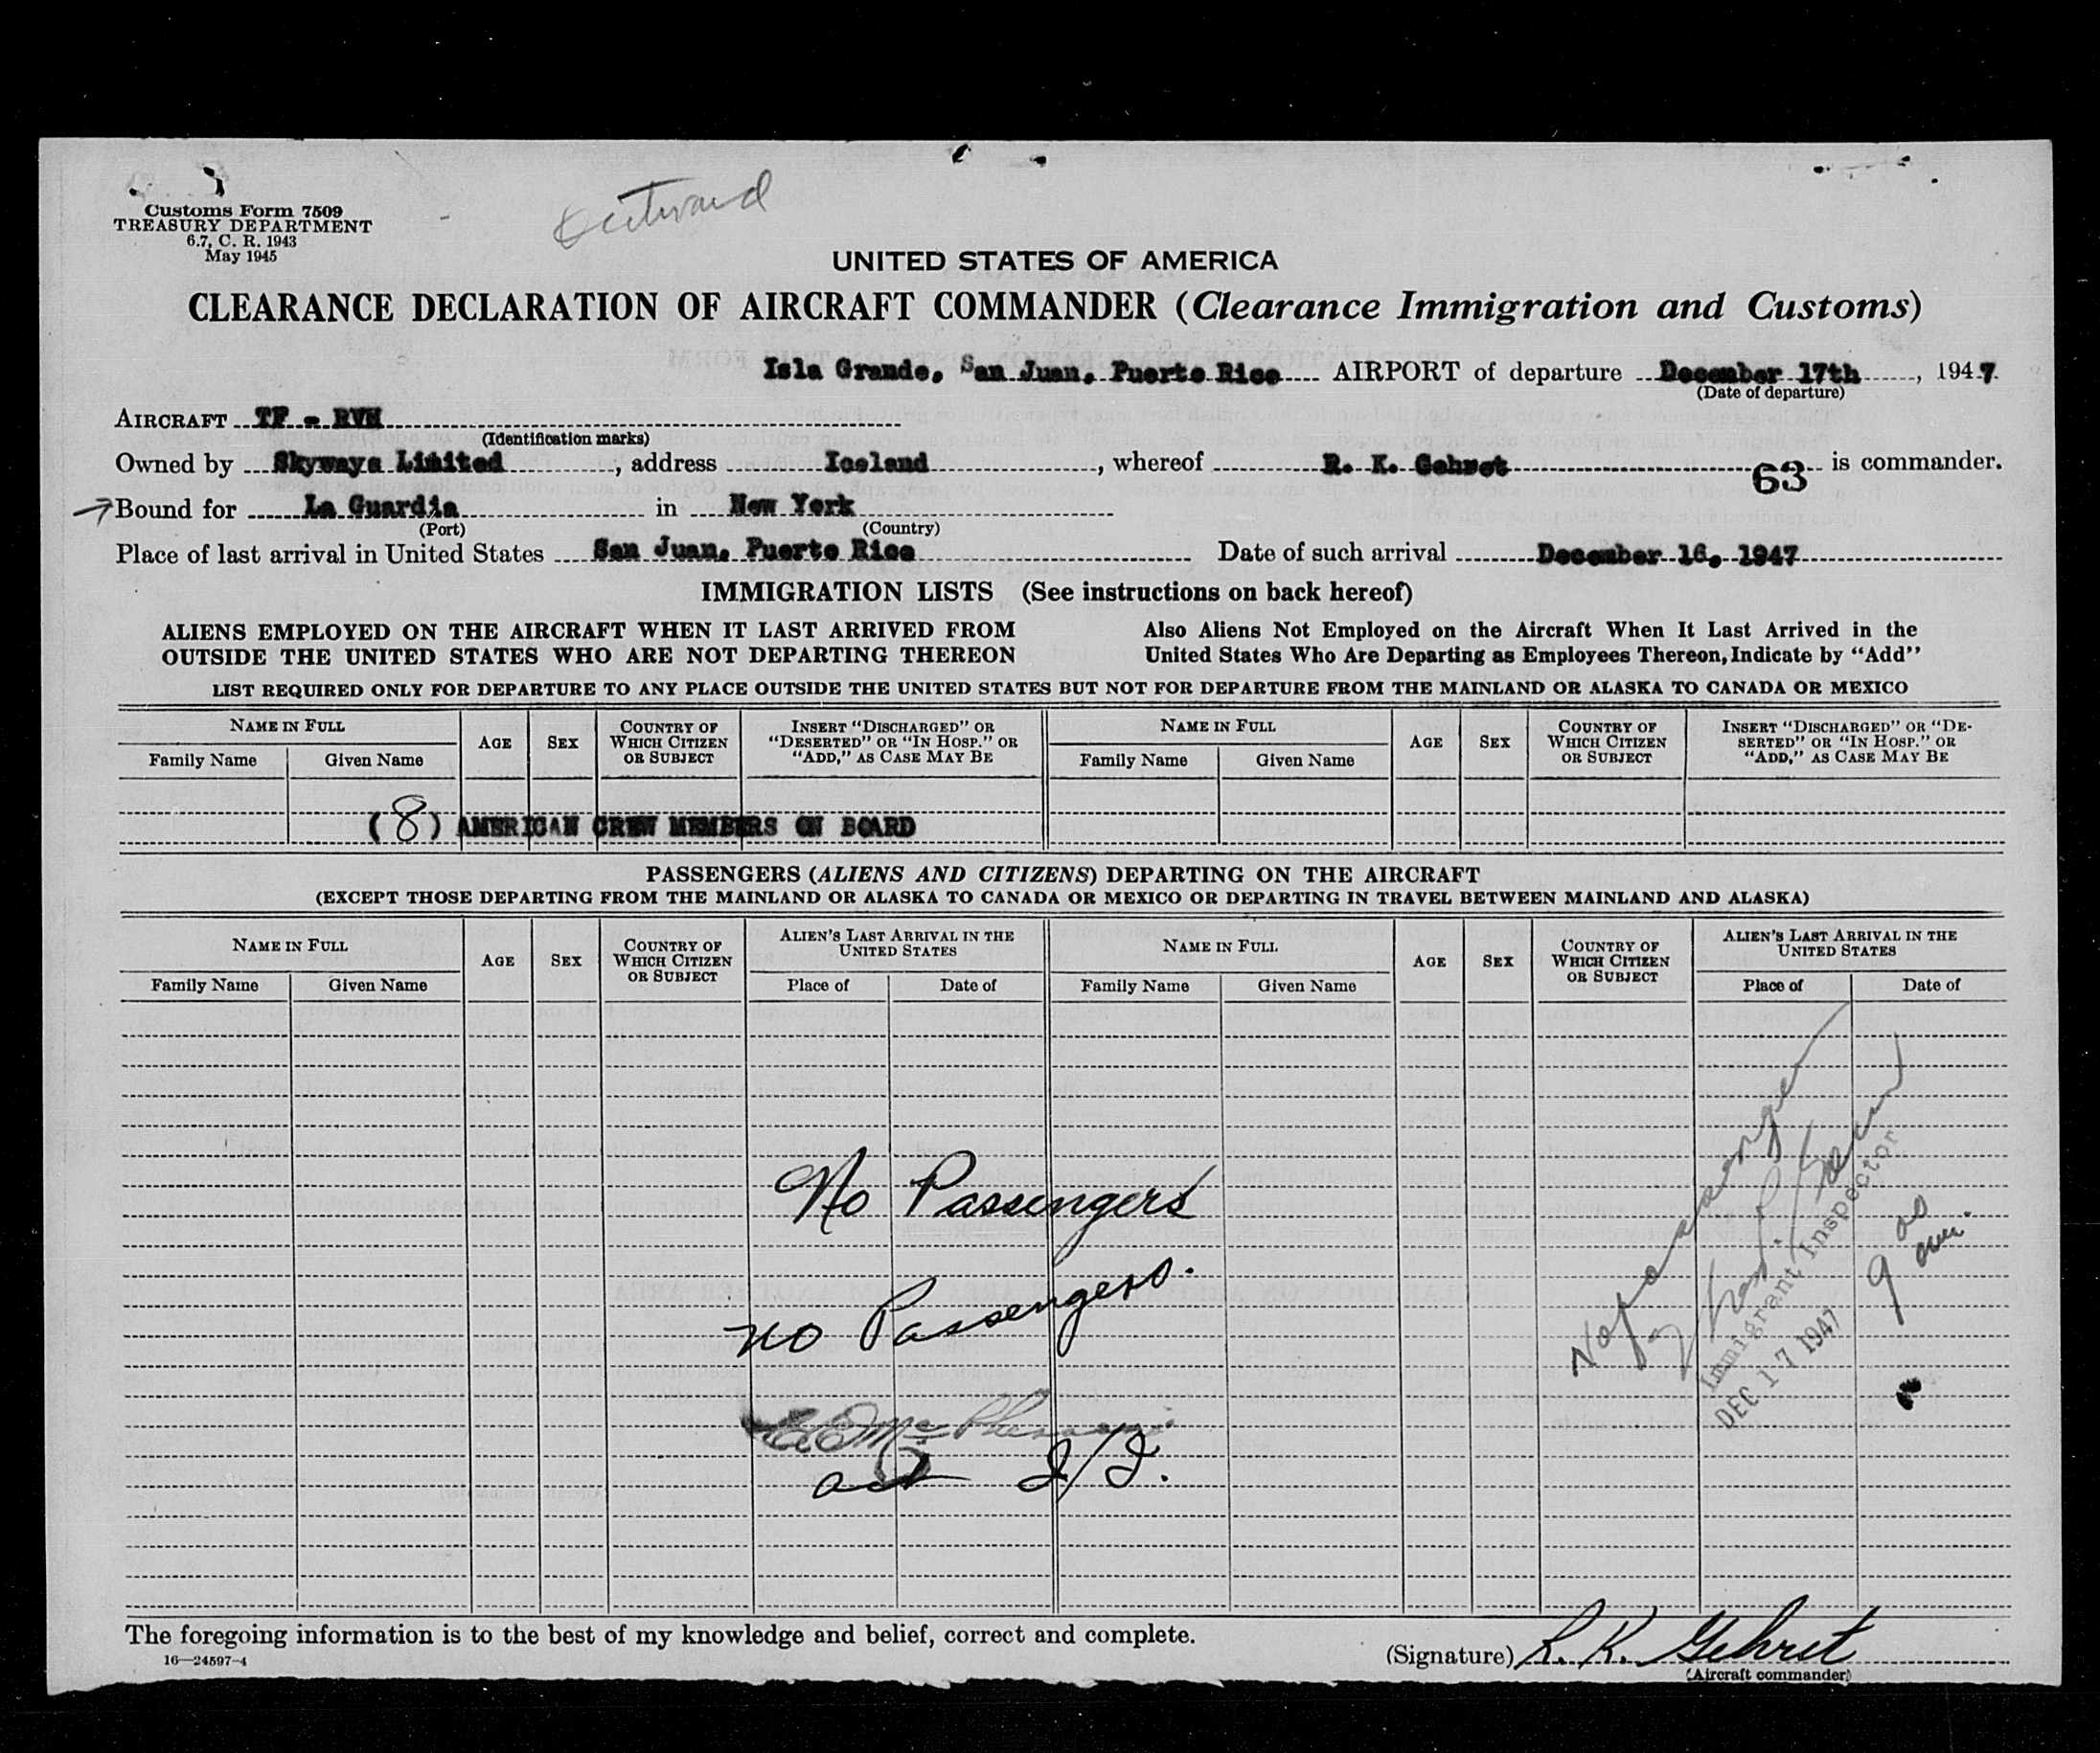 Outward
Customs Form 7509
TREASURY DEPARTMENT
6.7, C. R. 1943
May 1945
UNITED STATES OF AMERICA
CLEARANCE DECLARATION OF AIRCRAFT COMMANDER (Clearance Immigration and Customs)
Isla Grande, San Juan, Puerto Rico AIRPORT of departure December 17th, 1947.
(Date of departure)
AIRCRAFT TF - RVH
(Identification marks)
Owned by Skyways Limited, address Iceland, whereof R. K. Gehret 63 is commander.
Bound for La Guardia in New York
(Port) (Country)
Place of last arrival in United States San Juan, Puerto Rico Date of such arrival December 16, 1947
IMMIGRATION LISTS (See instructions on back hereof)
ALIENS EMPLOYED ON THE AIRCRAFT WHEN IT LAST ARRIVED FROM
OUTSIDE THE UNITED STATES WHO ARE NOT DEPARTING THEREON
Also Aliens Not Employed on the Aircraft When It Last Arrived in the
United States Who Are Departing as Employees Thereon, Indicate by "Add"
LIST REQUIRED ONLY FOR DEPARTURE TO ANY PLACE OUTSIDE THE UNITED STATES BUT NOT FOR DEPARTURE FROM THE MAINLAND OR ALASKA TO CANADA OR MEXICO
NAME IN FULL
Family Name Given Name
AGE
SEX
COUNTRY OF
WHICH CITIZEN
OR SUBJECT
INSERT "DISCHARGED" OR
"DESERTED" OR "IN HOSP." OR
"ADD," AS CASE MAY BE
NAME IN FULL
Family Name Given Name
AGE
SEX
COUNTRY OF
WHICH CITIZEN
OR SUBJECT
INSERT "DISCHARGED" OR "DE-
SERTED" OR "IN HOSP." OR
"ADD," AS CASE MAY BE
(8) AMERICAN CREW MEMBERS ON BOARD
PASSENGERS (ALIENS AND CITIZENS) DEPARTING ON THE AIRCRAFT
(EXCEPT THOSE DEPARTING FROM THE MAINLAND OR ALASKA TO CANADA OR MEXICO OR DEPARTING IN TRAVEL BETWEEN MAINLAND AND ALASKA)
NAME IN FULL
Family Name Given Name
AGE
SEX
COUNTRY OF
WHICH CITIZEN
OR SUBJECT
ALIEN'S LAST ARRIVAL IN THE
UNITED STATES
Place of Date of
NAME IN FULL
Family Name Given Name
AGE
SEX
COUNTRY OF
WHICH CITIZEN
OR SUBJECT
ALIEN'S LAST ARRIVAL IN THE
UNITED STATES
Place of Date of
No Passengers
no Passengers.
act I/I.
No passenger
Immigrant Inspector
DEC 17 1947
9 00
The foregoing information is to the best of my knowledge and belief, correct and complete.
16—24597-4
(Signature) R. K. Gehret
(Aircraft commander)